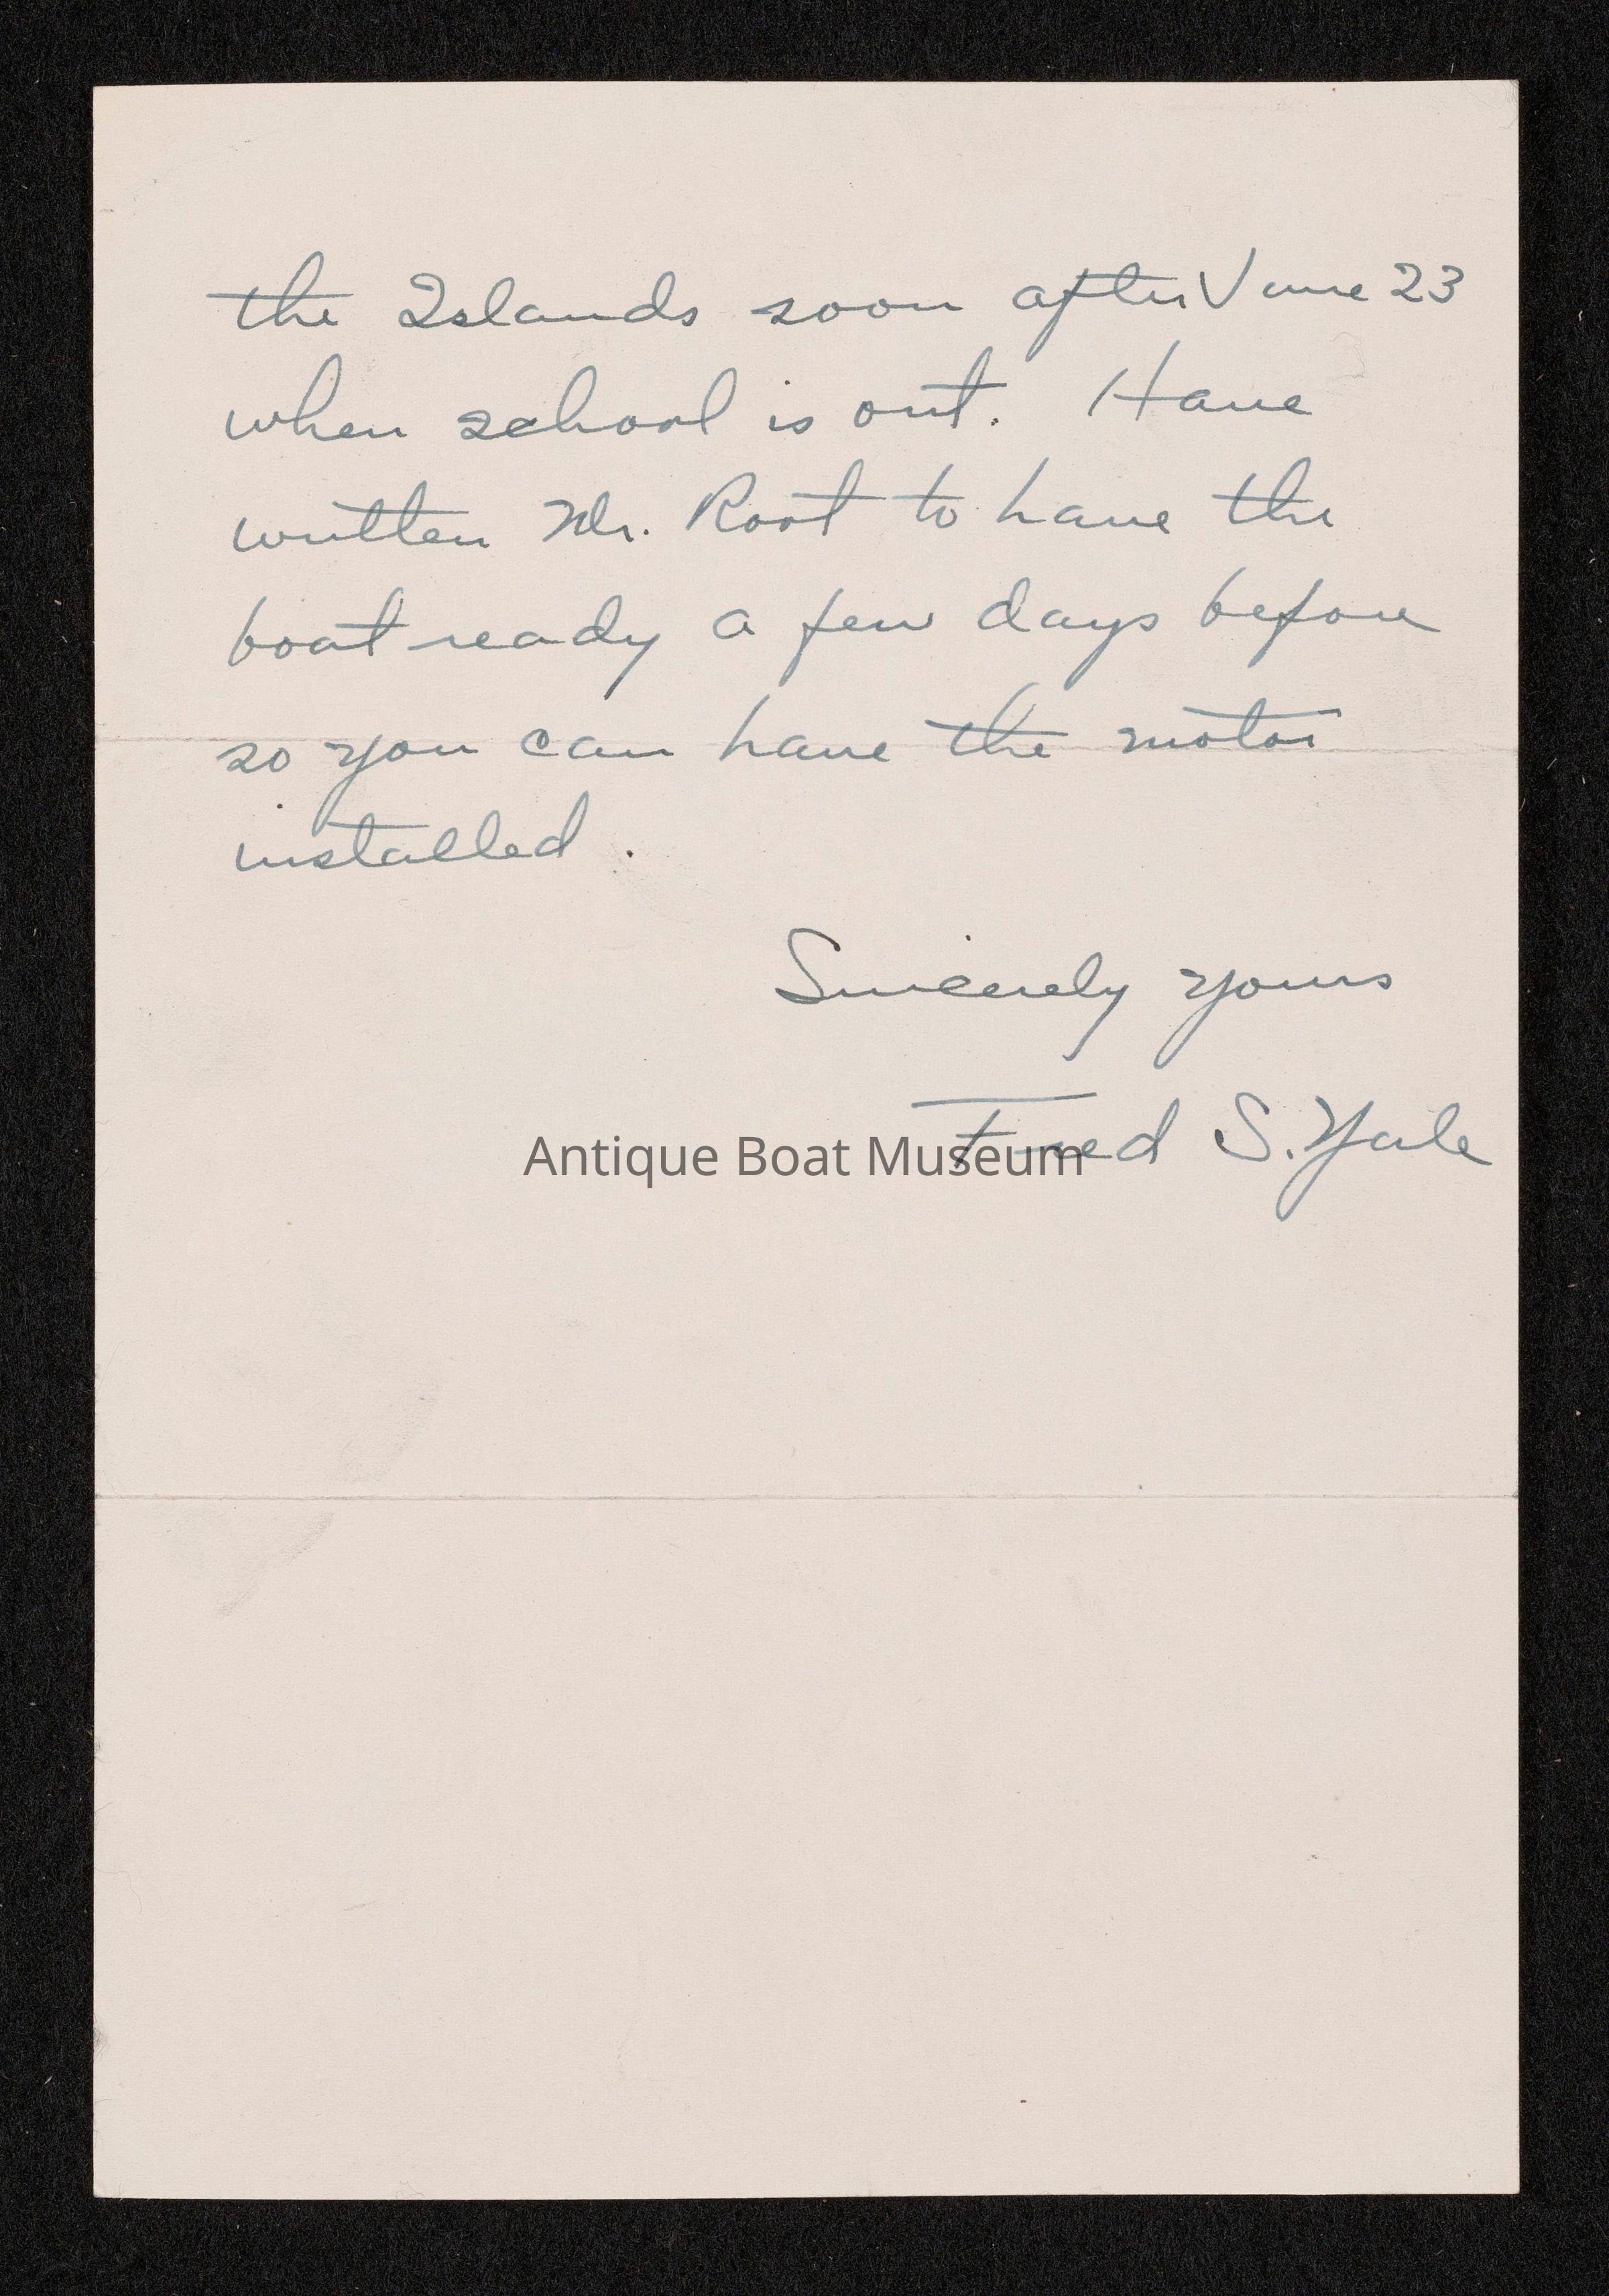 the Islands soon after June 23
when school is out. Have
written Mr. Root to have the
boat ready a few days before
so you can have the motor
installed.
Sincerely yours
Fred S. Yale
Antique Boat Museum